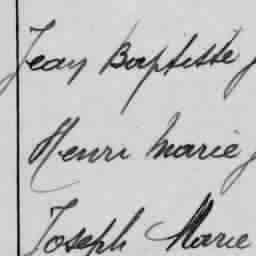 Jean Baptiste
Henri Marie
Joseph Marie